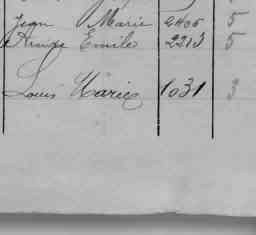 Jean Marie 2405 5
Emile 2213 5
Louis Marie 1031 3